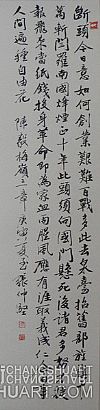 斷頭今日意如何創業艱難百戰多此去泉臺招舊部旌旗十
萬斬閻羅南國烽煙正十年此頭須向國門懸死後諸君多努力捷
報飛來當紙錢投身革命即為家血雨腥風應有涯取義成仁今日事
人間遍種自由花 陳毅梅嶺三章
CHANGSHUART
HUART.COM